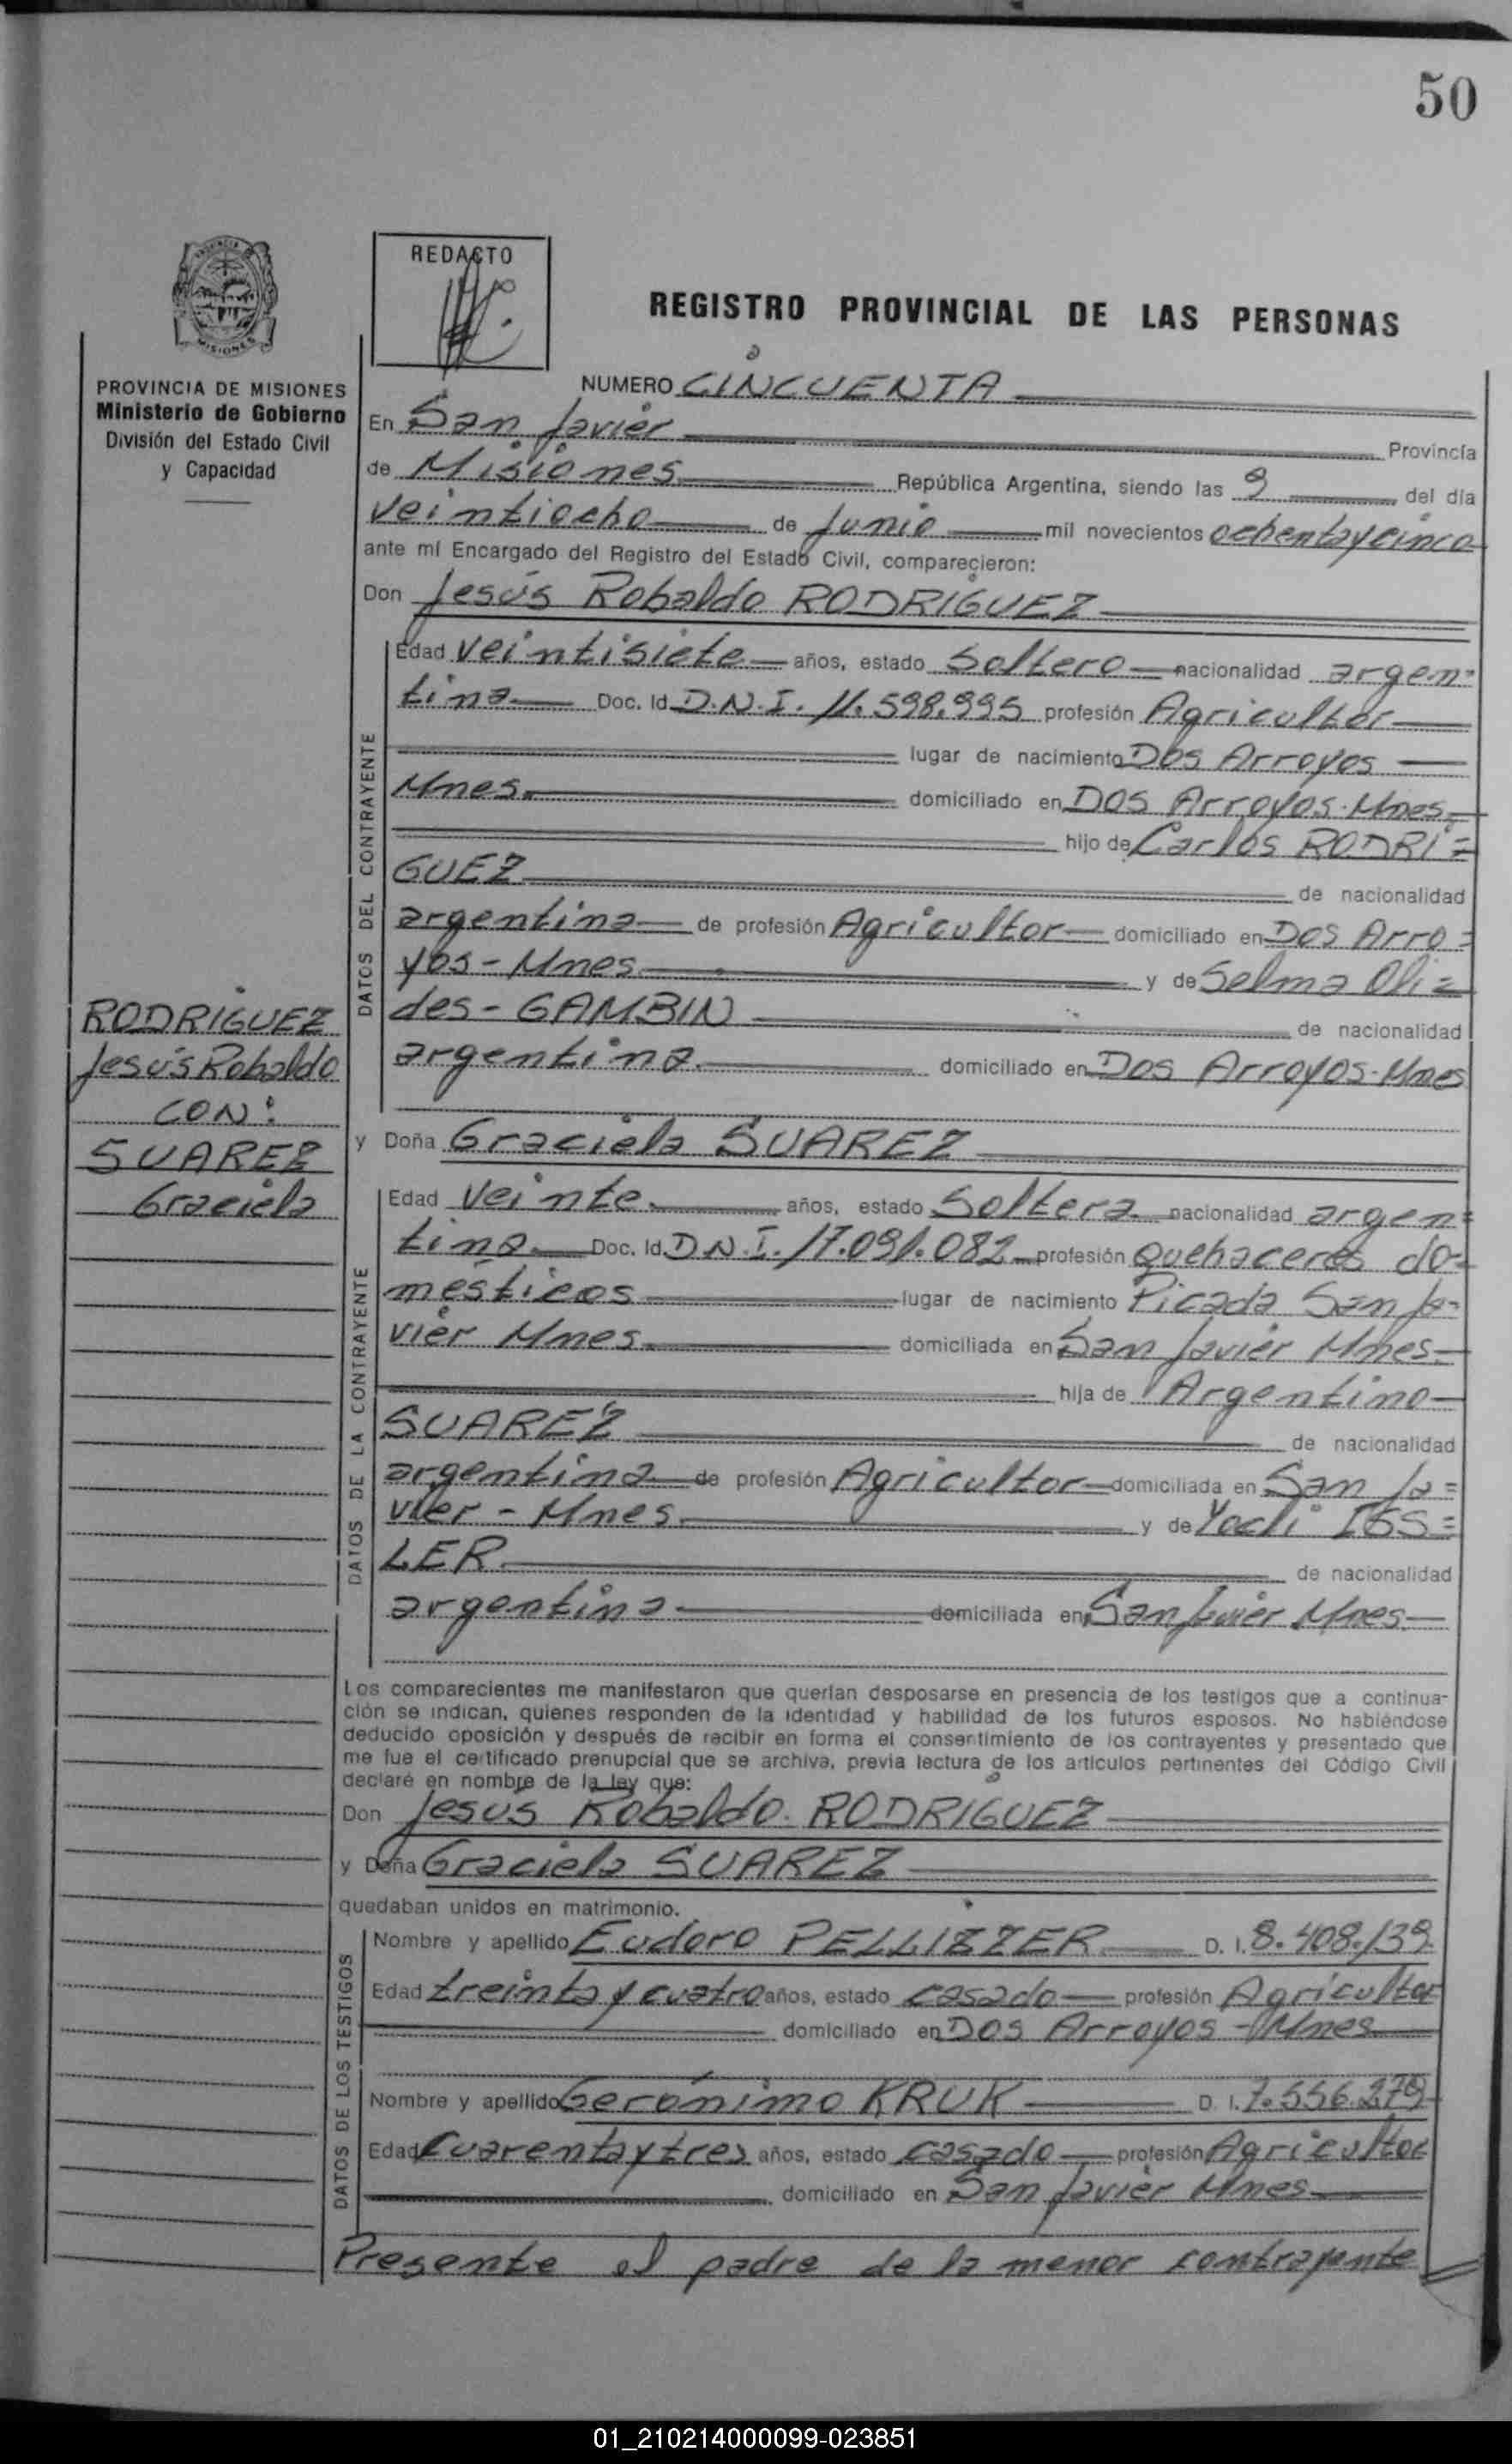 50
REDACTO
REGISTRO PROVINCIAL DE LAS PERSONAS
PROVINCIA DE MISIONES
Ministerio de Gobierno
División del Estado Civil
y Capacidad
NUMERO CINCUENTA
En San Javier Provincia
de Misiones República Argentina, siendo las 9 del día
veintiocho de Junio mil novecientos ochentaycinco
ante mí Encargado del Registro del Estado Civil, comparecieron:
Don Jesús Robaldo RODRIGUEZ
DATOS DEL CONTRAYENTE
Edad veintisiete años, estado Soltero nacionalidad argen-
tina Doc. Id. D.N.I. 11.598.995 profesión Agricultor
lugar de nacimiento Dos Arroyos
Mnes. domiciliado en Dos Arroyos-Mnes.
hijo de Carlos RODRI=
GUEZ de nacionalidad
argentina de profesión Agricultor domiciliado en Dos Arro=
yos-Mnes. y de Selma Oli=
des-GAMBIN de nacionalidad
argentina. domiciliado en Dos Arroyos-Mnes
RODRIGUEZ
Jesús Robaldo
CON:
SUAREZ
Graciela
y Doña Graciela SUAREZ
DATOS DE LA CONTRAYENTE
Edad Veinte. años, estado Soltera nacionalidad argen=
tina. Doc. Id. D.N.I. 17.091.082 profesión Quehaceres do-
mésticos lugar de nacimiento Picada San Ja-
vier Mnes. domiciliada en San Javier Mnes.
hija de Argentino
SUAREZ de nacionalidad
argentina de profesión Agricultor domiciliada en San Ja=
vier - Mnes. y de
LER. de nacionalidad
argentina. domiciliada en San Javier Mnes.
Los comparecientes me manifestaron que querían desposarse en presencia de los testigos que a continua-
ción se indican, quienes responden de la identidad y habilidad de los futuros esposos. No habiéndose
deducido oposición y después de recibir en forma el consentimiento de los contrayentes y presentado que
me fue el certificado prenupcial que se archiva, previa lectura de los artículos pertinentes del Código Civil
declaré en nombre de la ley que:
Don Jesús Robaldo RODRIGUEZ
y Doña Graciela SUAREZ
quedaban unidos en matrimonio.
DATOS DE LOS TESTIGOS
Nombre y apellido Eudoro PELLIZZER D. I. 8.408.139.
Edad treinta y cuatro años, estado casado profesión Agricultor
domiciliado en Dos Arroyos - Mnes
Nombre y apellido Gerónimo KRUK D. I. 7.556.279
Edad Cuarentaytres años, estado casado profesión Agricultor
domiciliado en San Javier Mnes
Presente el padre de la menor contrayente
01_210214000099-023851